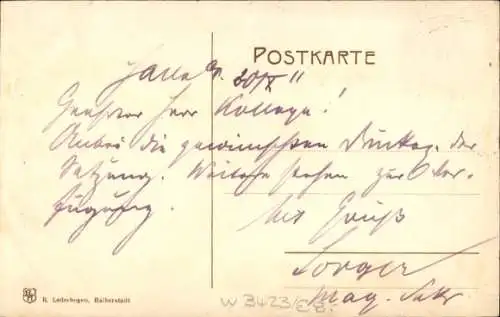 POSTKARTE
Halle a/S. 20/X 11
Geehrter Herr Kollege!
Anbei die gewünschten Drucke der
Satzung. Weitere stehen zur Ver-
fügung.
Mit Gruß
Sorger
Mag. Sekr.
R. Lederbogen, Halberstadt
W 3423/E B.